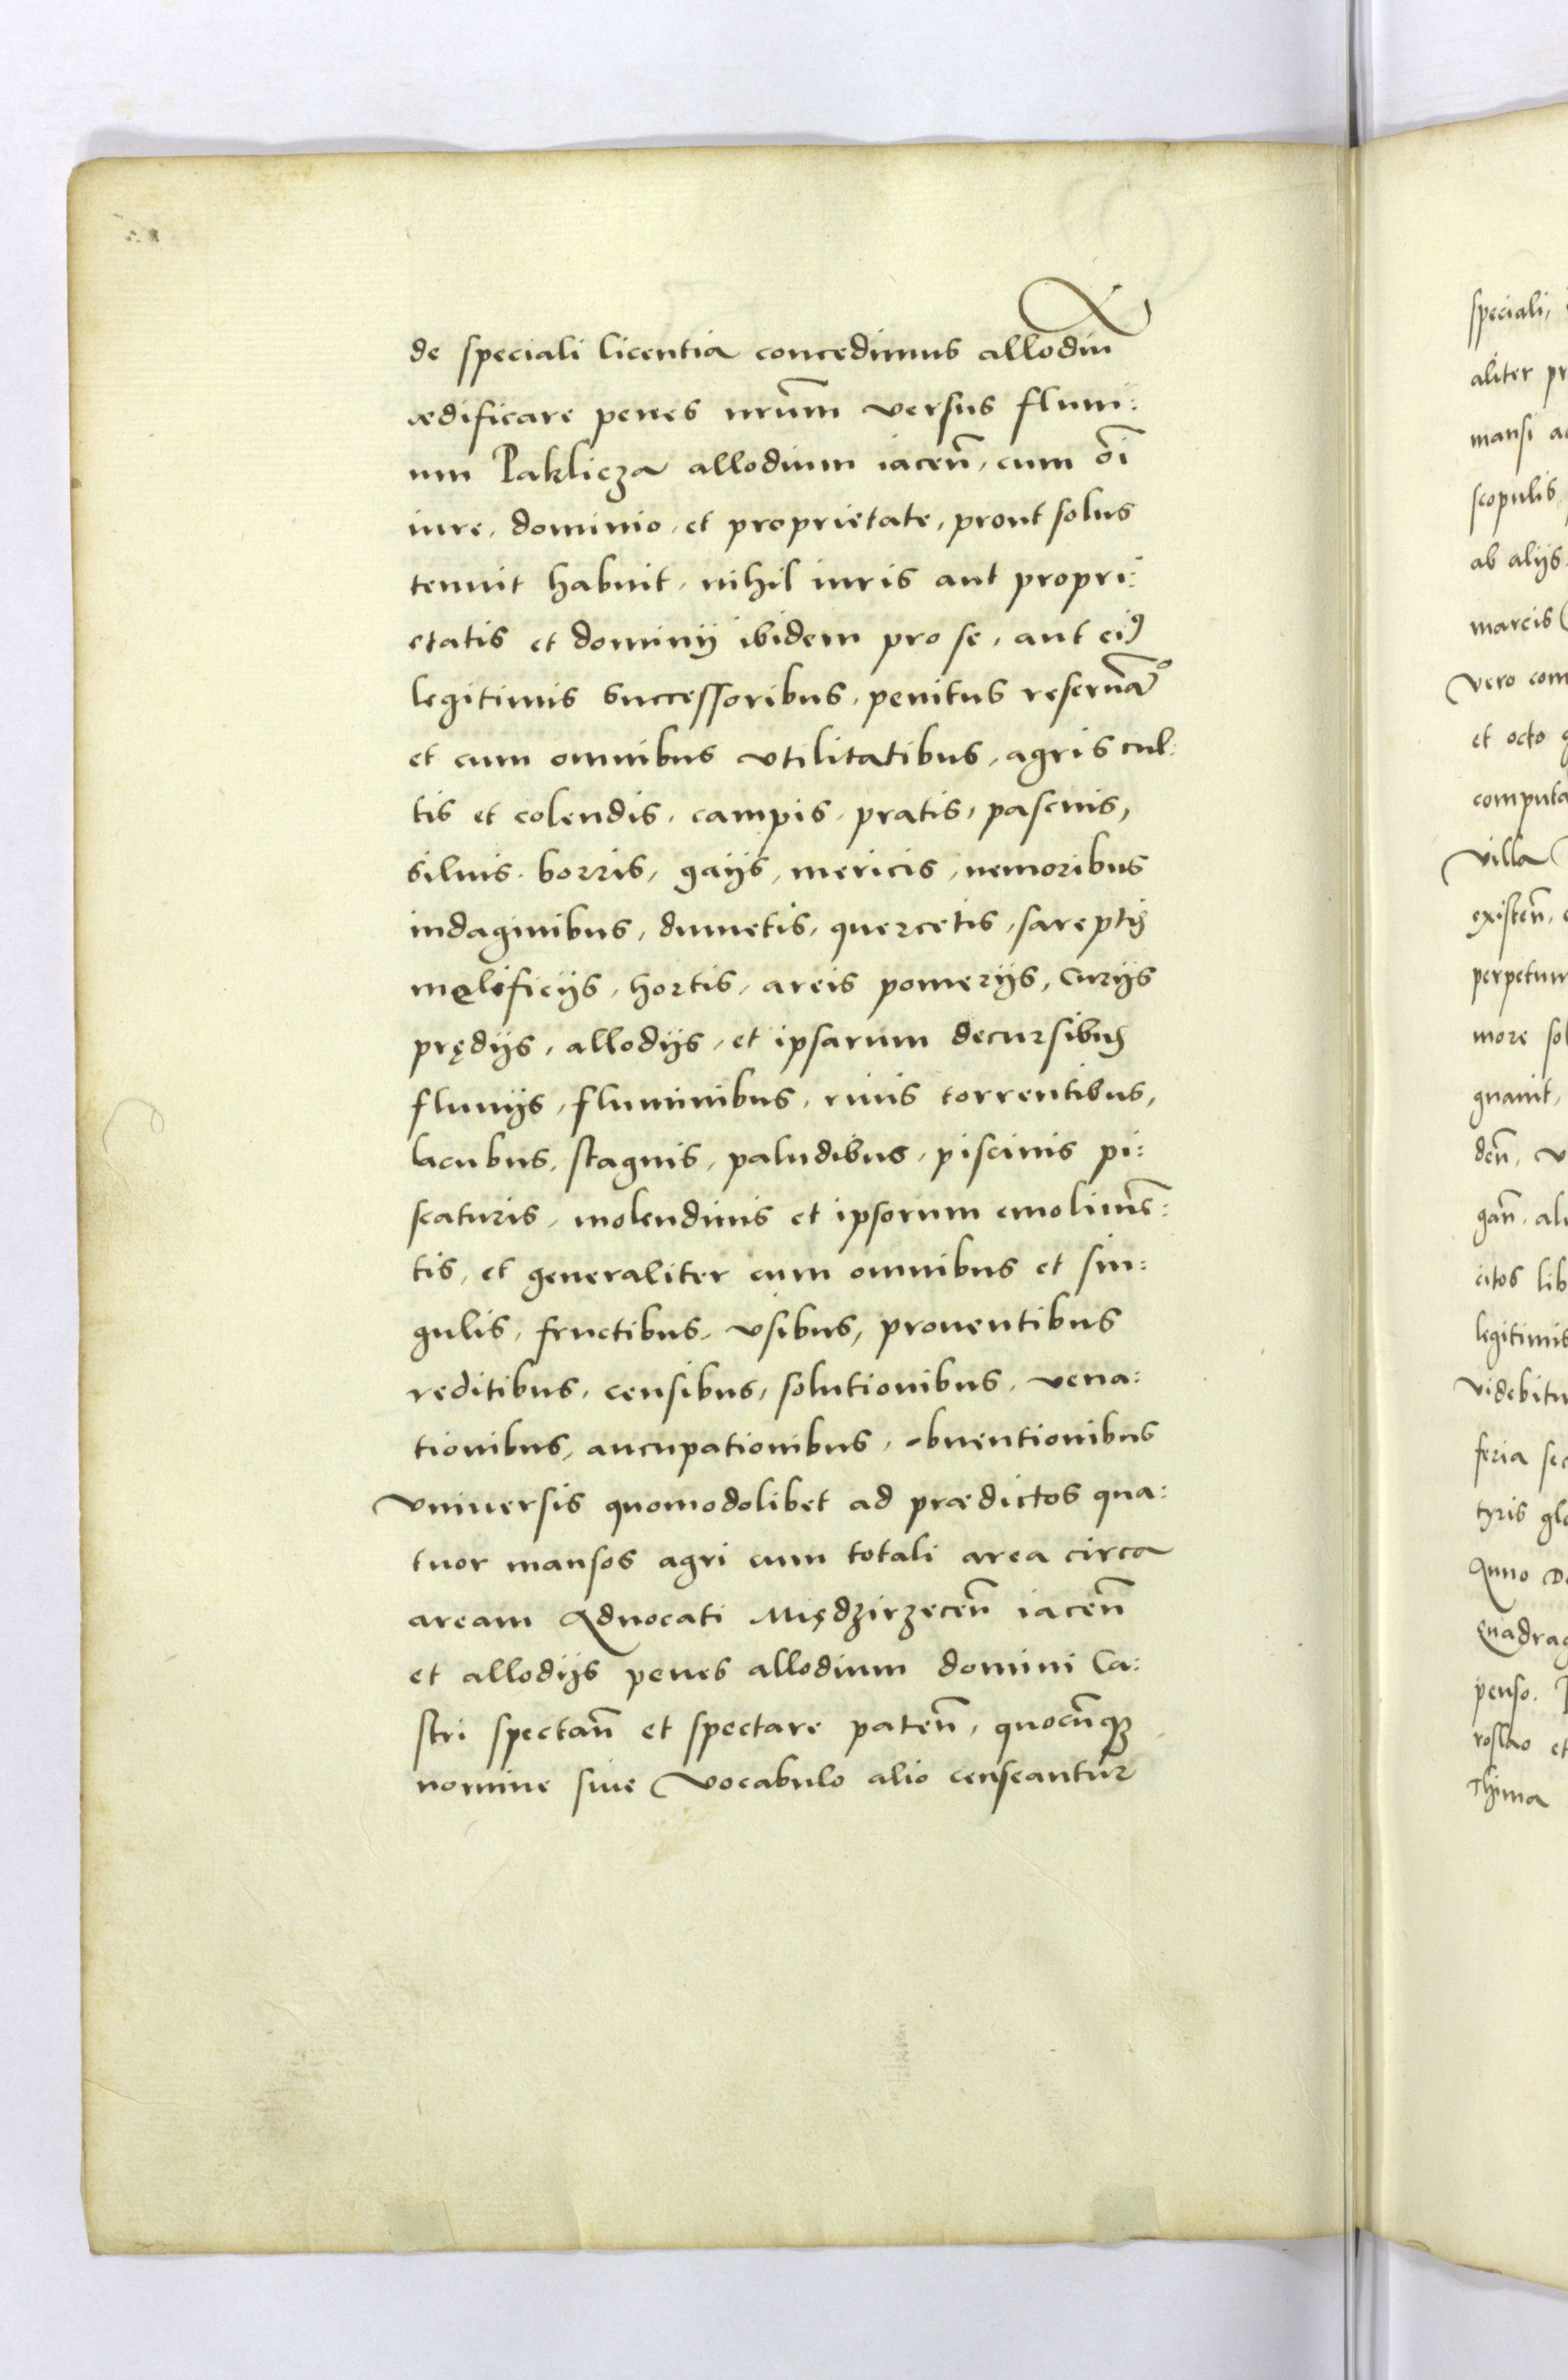 de speciali licentia concedimus allodiu̅
ædificare penes nr̅um versus flum:
um Pakliczа allodium iacen̅, cum o̅i
iure, dominio, et proprietate, prout solus
tenuit habuit, nihil iuris aut propri:
etatis et dominij ibidem pro se, aut eiꝰ
legitimis successoribus, penitus reseruãᵒ
et cum omnibus vtilitatibus, agris cul:
tis et colendis, campis, pratis, pascuis,
siluis, borris, gaijs, mericis, nemoribus
indaginibus, dumetis, quercetis, sareptis
męlificijs, hortis, areis pomerijs, curijs
prędijs, allodijs, et ipsarum decursibus
fluuijs, fluminibus, riuis torrentibus,
lacubus, stagnis, paludibus, piscinis pi:
scaturis, molendinis et ipsorum emolime̅:
tis, et generaliter cum omnibus et sin:
gulis, fructibus, vsibus, prouentibus
reditibus, censibus, solutionibus, vena:
tionibus, aucupationibus, obuentionibus
vniuersis quomodolibet ad prædictos qua:
tuor mansos agri cum totali area circa
aream Aduocati Międzirzecen̅ iacen̅
et allodijs penes allodium domini Ca:
stri spectan̅ et spectare paten̅, quocu̅qꝫ
nomine siue vocabulo alio censeantur
speciali,
aliter pr
mansi a
scopulis
ab alijs
marcis
vero com
et octo
computa
villa
existen̅,
perpetuu
more sol
gnauit,
den̅, v
gan̅, ali
citos lib
legitimis
videbitu
feria sec
tyris glo
Anno Do
Quadrag
penso.
roslao et
Thima